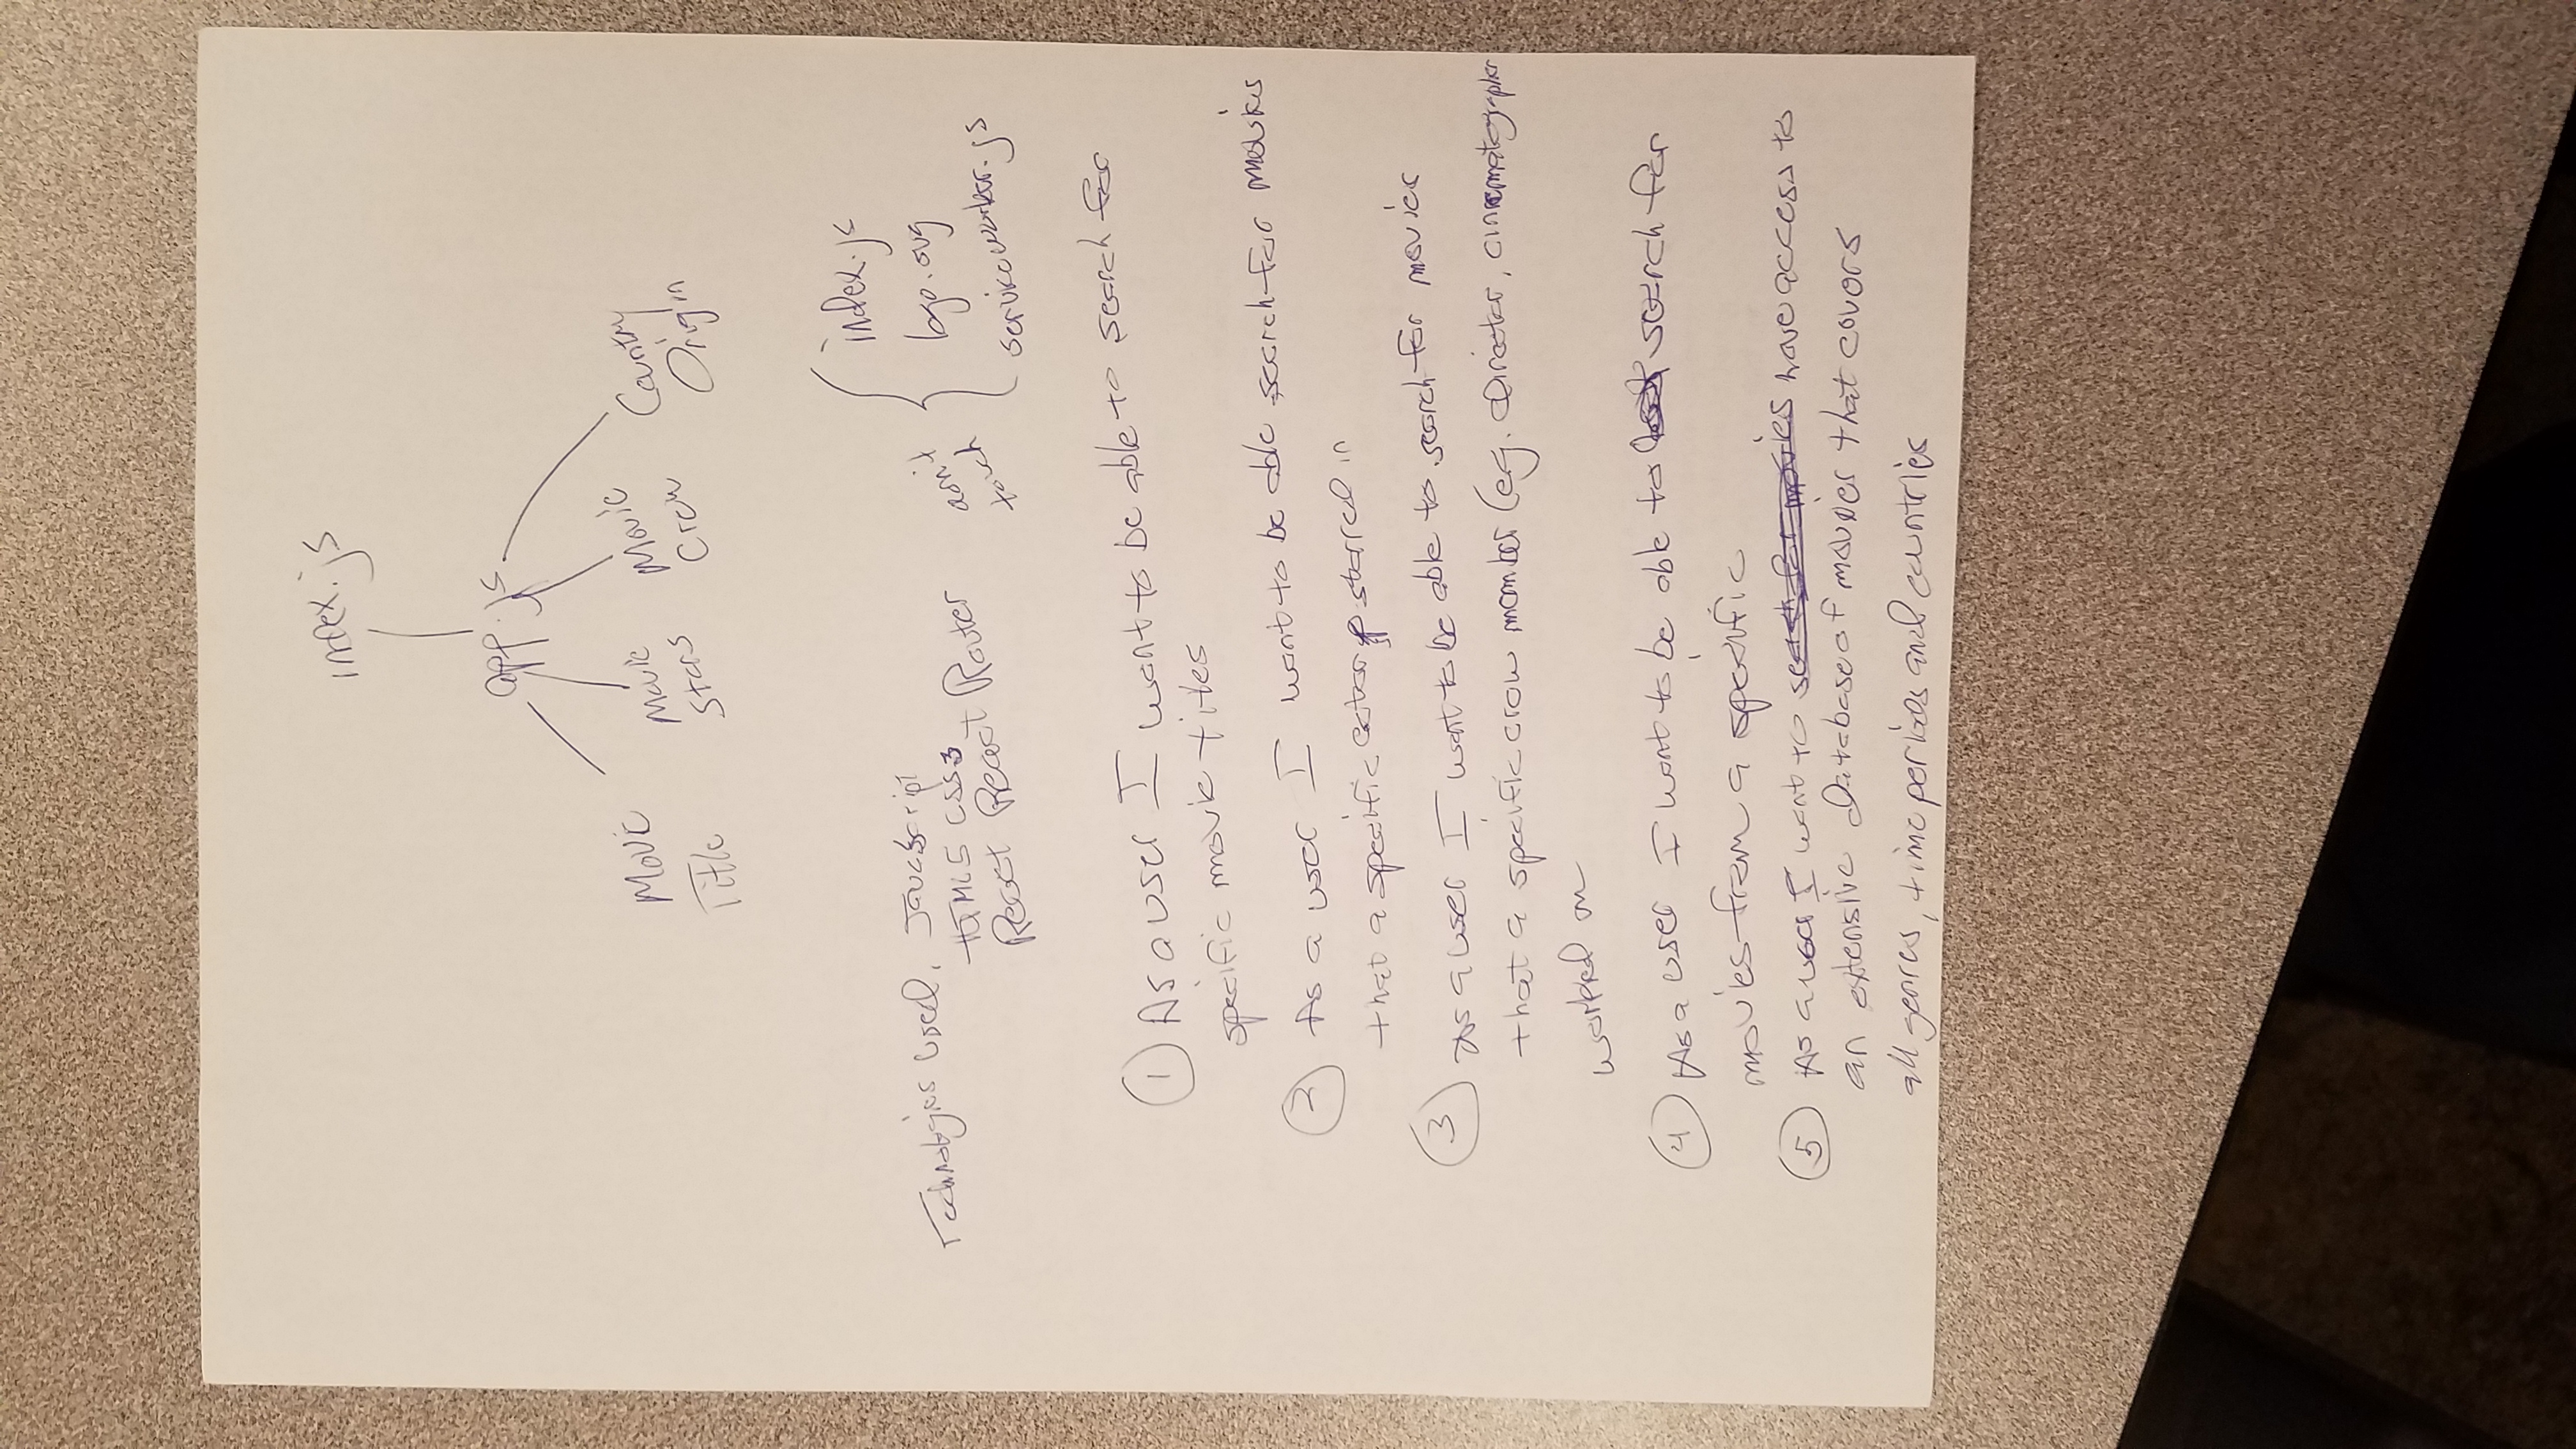 index.js
app.js
Movie Movie Movie Country
Title Stars Crew Origin
Technologies used, JavaScript
HTML5 CSS3
React React Router
don't
touch
index.js
logo.svg
serviceworker.js
1 As a user I want to be able to search for
specific movie titles
2 As a user I want to be able search for movies
that a specific actor starred in
3 As a user I want to be able to search for movies
that a specific crew member (e.g. director, cinematographer
worked on
4 As a user I want to be able to search for
movies from a specific
5 As a user I want to search for movies have access to
an extensive database of movies that covers
all genres, time periods and countries